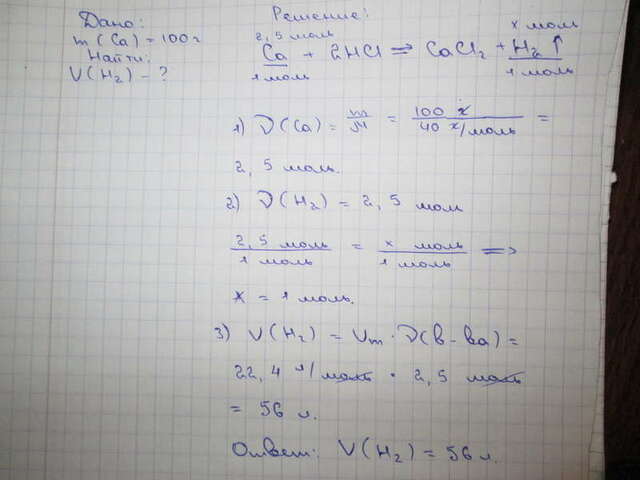 Дано:
m(Ca) = 100г
Найти:
V(H₂) - ?
Решение:
2,5 моль x моль
Ca + 2HCl => CaCl₂ + H₂ ↑
1 моль 1 моль
1) ν(Ca) = m/M = 100 г / 40 г/моль =
2,5 моль.
2) ν(H₂) = 2,5 мол
2,5 моль / 1 моль = x моль / 1 моль =>
x = 1 моль.
3) V(H₂) = Vm · ν(в-ва) =
22,4 л/моль · 2,5 моль
= 56 л.
Ответ: V(H₂) = 56 л.